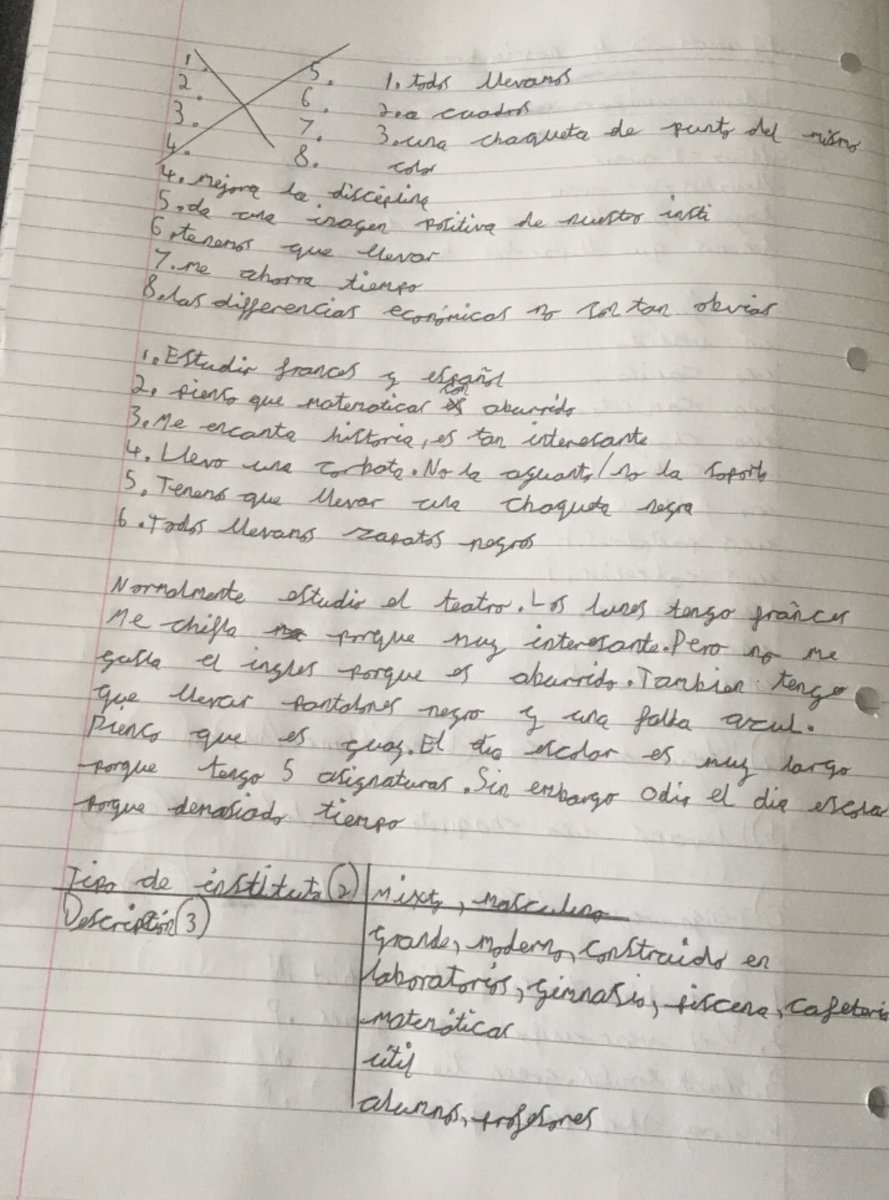 1. 5. 1. todos llevamos
2. 6. 2. a cuadros
3. 7. 3. una chaqueta de punto del mismo
4. 8. color
4. mejora la discipline
5. da una imagen positiva de nuestro insti
6. tenemos que llevar
7. me ahorra tiempo
8. las differencias económicas no son tan obvias
1. Estudio frances y español
2. pienso que matematicas son aburrido
3. Me encanta historia, es tan interesante
4. Llevo una corbata. No la aguanto/no la soporto
5. Tenemos que llevar una chaqueta negra
6. Todos llevamos zapatos negros
Normalmente estudio el teatro. Los lunes tengo frances
Me chifla porque muy interesante. Pero no me
gusta el ingles porque es aburrido. Tambien tengo
que llevar pantalones negro y una falda azul.
Pienso que es guay. El dia escolar es muy largo
porque tengo 5 asignaturas. Sin embargo odio el dia escolar
porque demasiado tiempo
Tipo de instituto (2) mixto, masculino
Description (3)
grande, moderno, construido en
laboratorios, gimnasio, piscena, cafeteria
matemáticas
útil
alumnos, profesores